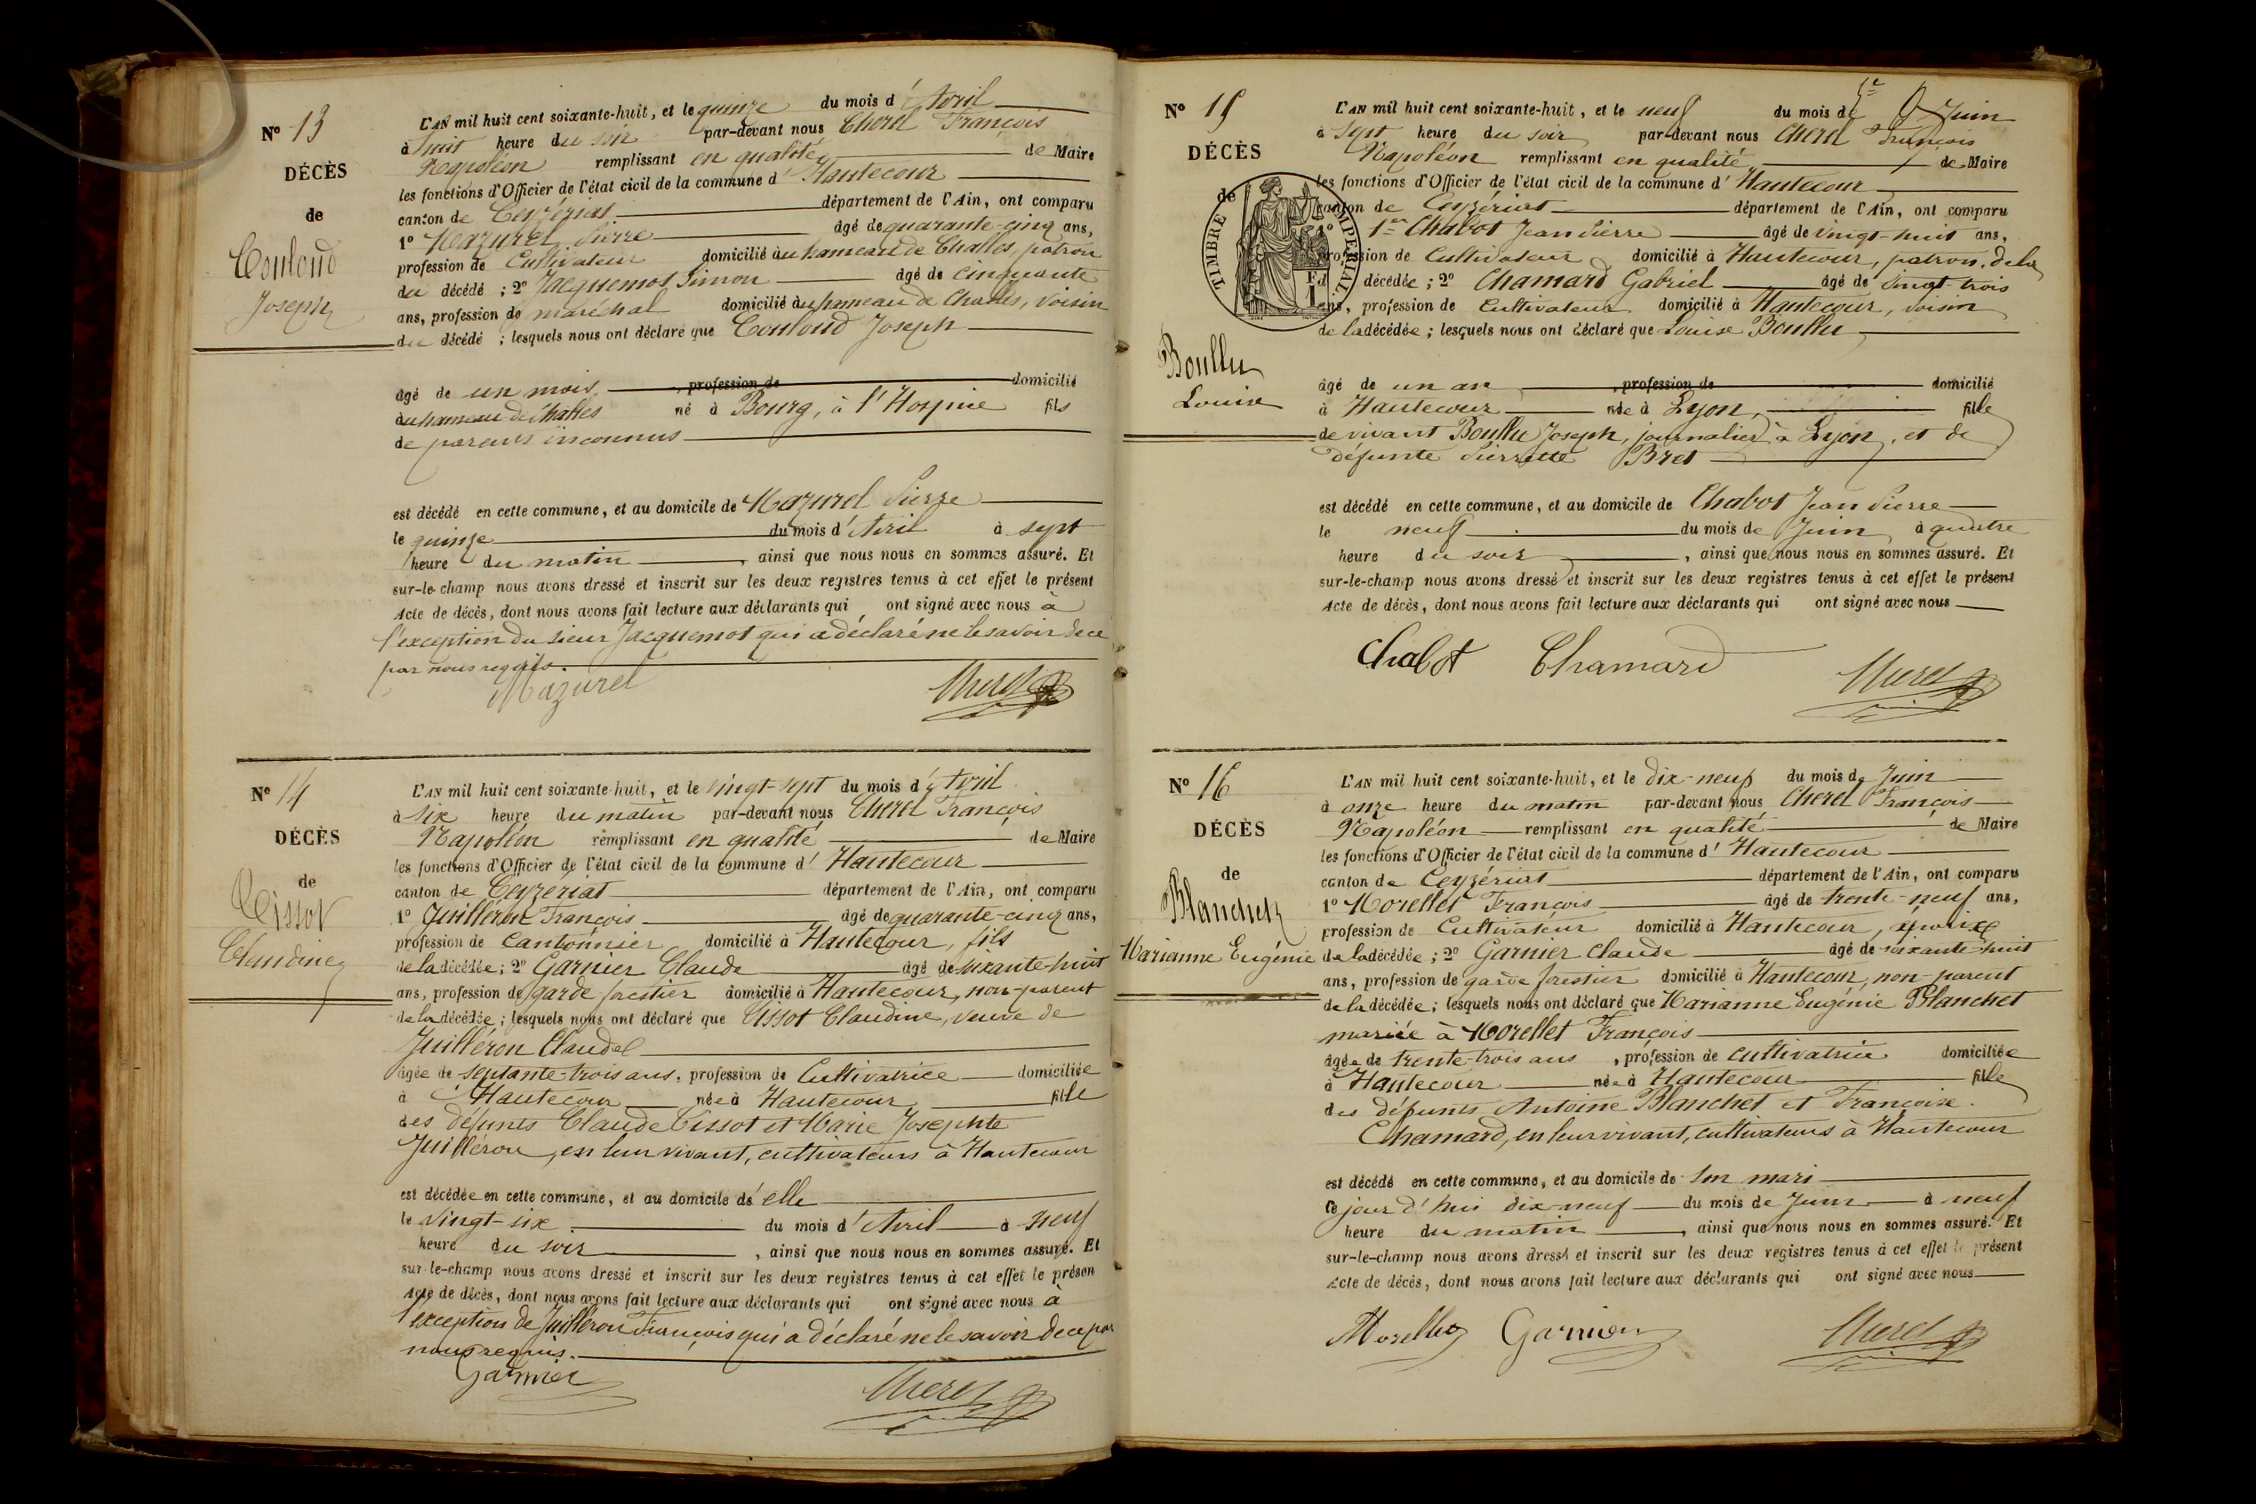 N° 13
DÉCÈS
de
Couloud
Joseph
L'AN mil huit cent soixante-huit, et le quinze du mois d'Avril
à huit heure du soir par-devant nous Cherel François
Napoléon remplissant en qualité de Maire
les fonctions d'Officier de l'état civil de la commune d'Hautecour
canton de Ceyzériat département de l'Ain, ont comparu
1° Mazurel Pierre âgé de quarante-cinq ans,
profession de Cultivateur domicilié au hameau de Challes, patron
du décédé ; 2° Jacquemot Simon âgé de cinquante
ans, profession de maréchal domicilié au hameau de Challes, voisin
du décédé ; lesquels nous ont déclaré que Couloud Joseph
âgé de un mois, profession de domicilié
au hameau de Challes né à Bourg, à l'Hospice fils
de parents inconnus
est décédé en cette commune, et au domicile de Mazurel Pierre
le quinze du mois d'Avril à sept
heure du matin, ainsi que nous nous en sommes assuré. Et
sur-le-champ nous avons dressé et inscrit sur les deux registres tenus à cet effet le présent
Acte de décès, dont nous avons fait lecture aux déclarants qui ont signé avec nous à
l'exception du sieur Jacquemot qui a déclaré ne le savoir de ce
par nous requis.
Mazurel Cherel
N° 14
DÉCÈS
de
Cissot
Claudine
L'AN mil huit cent soixante-huit, et le vingt-sept du mois d'Avril
à six heure du matin par-devant nous Cherel François
Napoléon remplissant en qualité de Maire
les fonctions d'Officier de l'état civil de la commune d'Hautecour
canton de Ceyzériat département de l'Ain, ont comparu
1° Juilléron François âgé de quarante-cinq ans,
profession de cantonnier domicilié à Hautecour, fils
de la décédée ; 2° Garnier Claude âgé de soixante-huit
ans, profession de garde forestier domicilié à Hautecour, non-parent
de la décédée ; lesquels nous ont déclaré que Cissot Claudine, veuve de
Juilléron Claude
âgée de septante-trois ans, profession de Cultivatrice domiciliée
à Hautecour née à Hautecour fille
des défunts Claude Cissot et Marie Josephte
Juilléron, en leur vivant, cultivateurs à Hautecour
est décédée en cette commune, et au domicile d'elle
le vingt-six du mois d'Avril à neuf
heure du soir, ainsi que nous nous en sommes assuré. Et
sur-le-champ nous avons dressé et inscrit sur les deux registres tenus à cet effet le présen
Acte de décès, dont nous avons fait lecture aux déclarants qui ont signé avec nous à
l'exception de Juilléron François qui a déclaré ne le savoir de ce par
nous requis.
Garnier Cherel
N° 15
DÉCÈS
de
TIMBRE IMPÉRIAL
Boullu
Louise
L'AN mil huit cent soixante-huit, et le neuf du mois de Juin
à sept heure du soir par-devant nous Cherel François
Napoléon remplissant en qualité de Maire
les fonctions d'Officier de l'état civil de la commune d'Hautecour
canton de Ceyzériat département de l'Ain, ont comparu
1er Chabot Jean Pierre âgé de vingt-huit ans,
profession de Cultivateur domicilié à Hautecour, patron de la
décédée ; 2° Chamard Gabriel âgé de vingt-trois
ans, profession de Cultivateur domicilié à Hautecour, voisin
de la décédée ; lesquels nous ont déclaré que Louise Boullu
âgé de un an, profession de domicilié
à Hautecour née à Lyon, fille
de vivant Boullu Joseph, journalier à Lyon, et de
défunte Pierrette Bret
est décédé en cette commune, et au domicile de Chabot Jean Pierre
le neuf du mois de Juin à quatre
heure du soir, ainsi que nous nous en sommes assuré. Et
sur-le-champ nous avons dressé et inscrit sur les deux registres tenus à cet effet le présent
Acte de décès, dont nous avons fait lecture aux déclarants qui ont signé avec nous
Chabot Chamard Cherel
N° 16
DÉCÈS
de
Blanchet
Marianne Eugénie
L'AN mil huit cent soixante-huit, et le dix-neuf du mois de Juin
à onze heure du matin par-devant nous Cherel François
Napoléon remplissant en qualité de Maire
les fonctions d'Officier de l'état civil de la commune d'Hautecour
canton de Ceyzériat département de l'Ain, ont comparu
1° Morellet François âgé de trente-neuf ans,
profession de Cultivateur domicilié à Hautecour, époux
de la décédée ; 2° Garnier Claude âgé de soixante-huit
ans, profession de garde forestier domicilié à Hautecour, non-parent
de la décédée ; lesquels nous ont déclaré que Marianne Eugénie Blanchet
mariée à Morellet François
âgée de trente-trois ans, profession de cultivatrice domiciliée
à Hautecour née à Hautecour fille
des défunts Antoine Blanchet et Françoise
Chamard, en leur vivant, cultivateurs à Hautecour
est décédé en cette commune, et au domicile de son mari
ce jour d'hui dix-neuf du mois de Juin à neuf
heure du matin, ainsi que nous nous en sommes assuré. Et
sur-le-champ nous avons dressé et inscrit sur les deux registres tenus à cet effet le présent
Acte de décès, dont nous avons fait lecture aux déclarants qui ont signé avec nous
Morellet Garnier Cherel